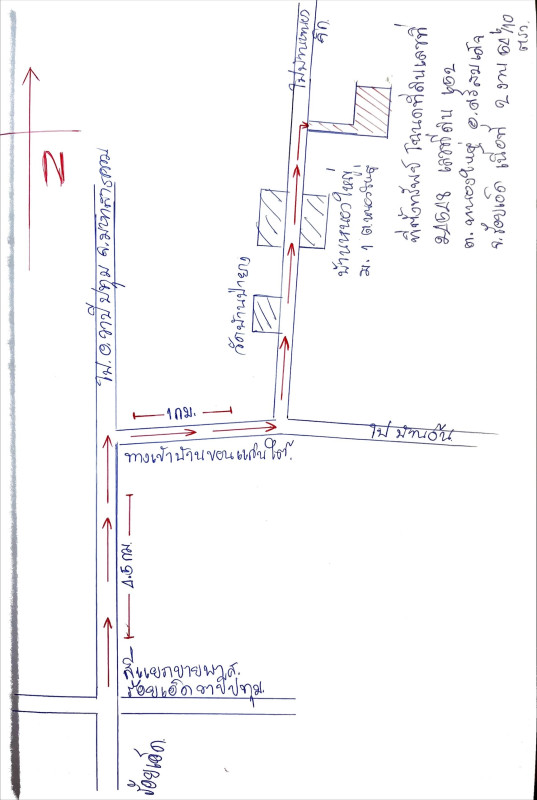 N
ไป อ.วาปีปทุม จ.มหาสารคาม
ไปบ้านหนอง
ที่ตั้งทรัพย์ โฉนดที่ดินเลขที่
เลขที่ดิน
ต.หนองใหญ่ อ.ศรีสมเด็จ
จ.ร้อยเอ็ด เนื้อที่ 2 งาน
ตรว.
บ้านหนองใหญ่
ม. 1 ต.หนองใหญ่
วัดบ้านป่ายาง
1 กม.
ไปบ้านอ้น
ทางเข้าบ้านขอนแก่นใต้.
4.5 กม.
สี่แยก
ร้อยเอ็ด วาปีปทุม.
ร้อยเอ็ด.